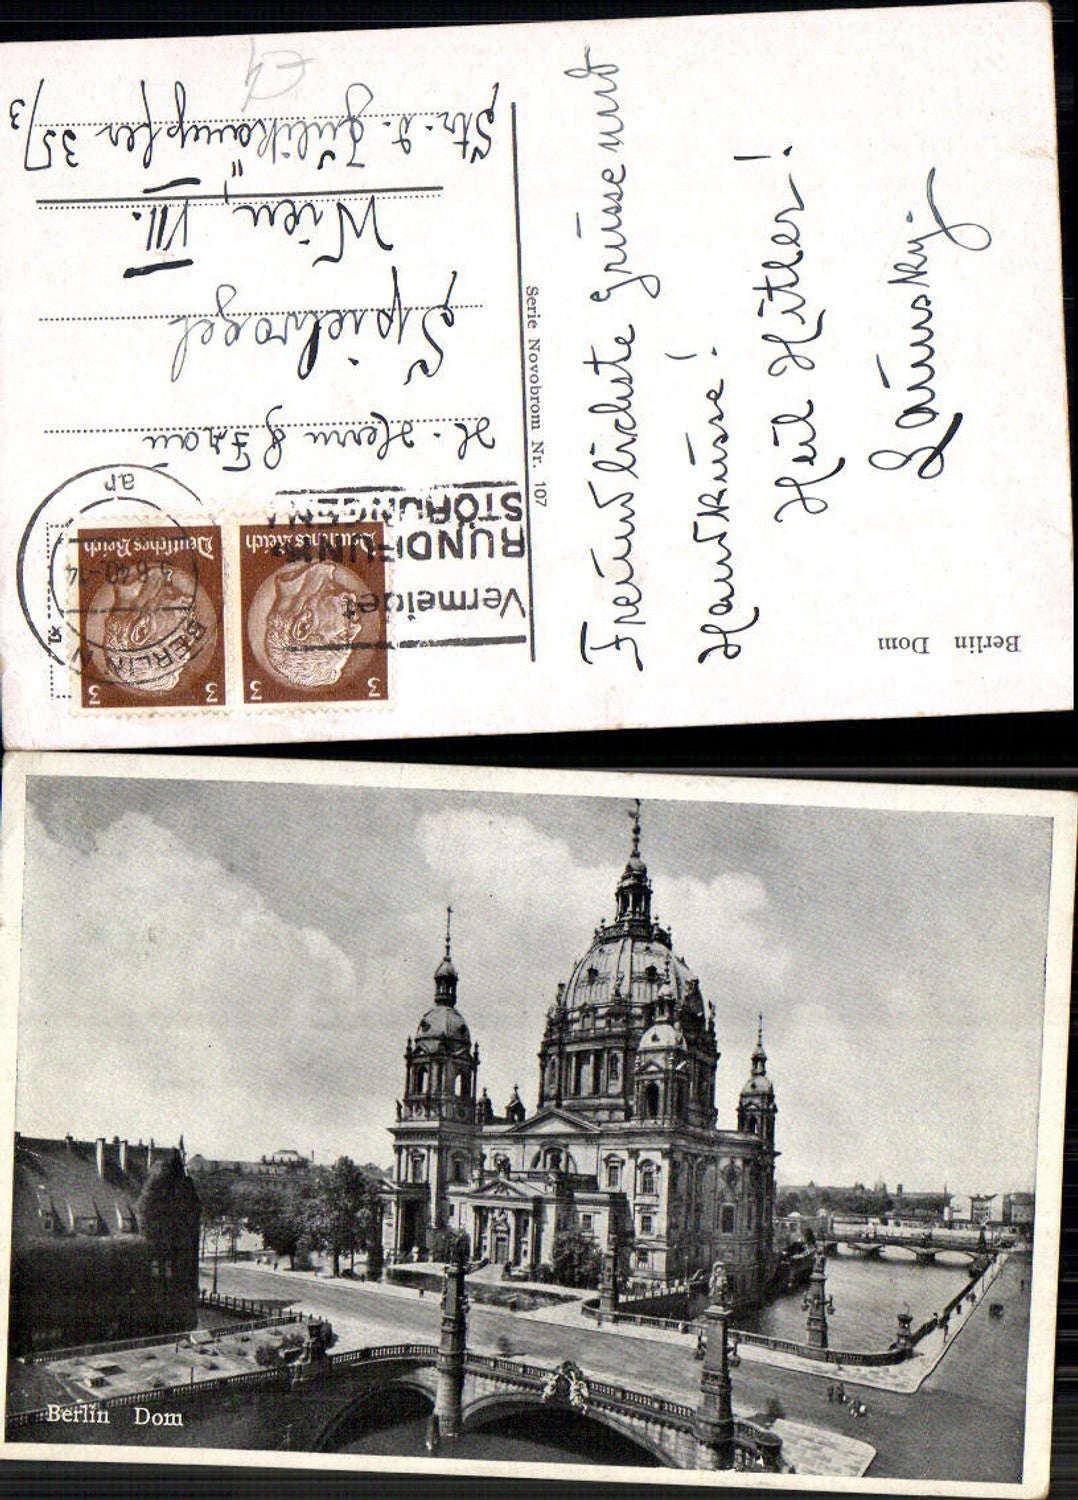 Berlin Dom
Freundlichste Grüsse und
Handküsse!
Heil Hitler!
Serie Novobrom Nr. 107
Vermeidet
RUNDFUNK
STÖRUNGEN
BERLIN N
3.6.40.-14
ar
3
3
Deutsches Reich
Deutsches Reich
H. Herrn & Frau
Spielvogel
Wien, VII.
Str. d. Julikämpfer 35/3
Berlin Dom